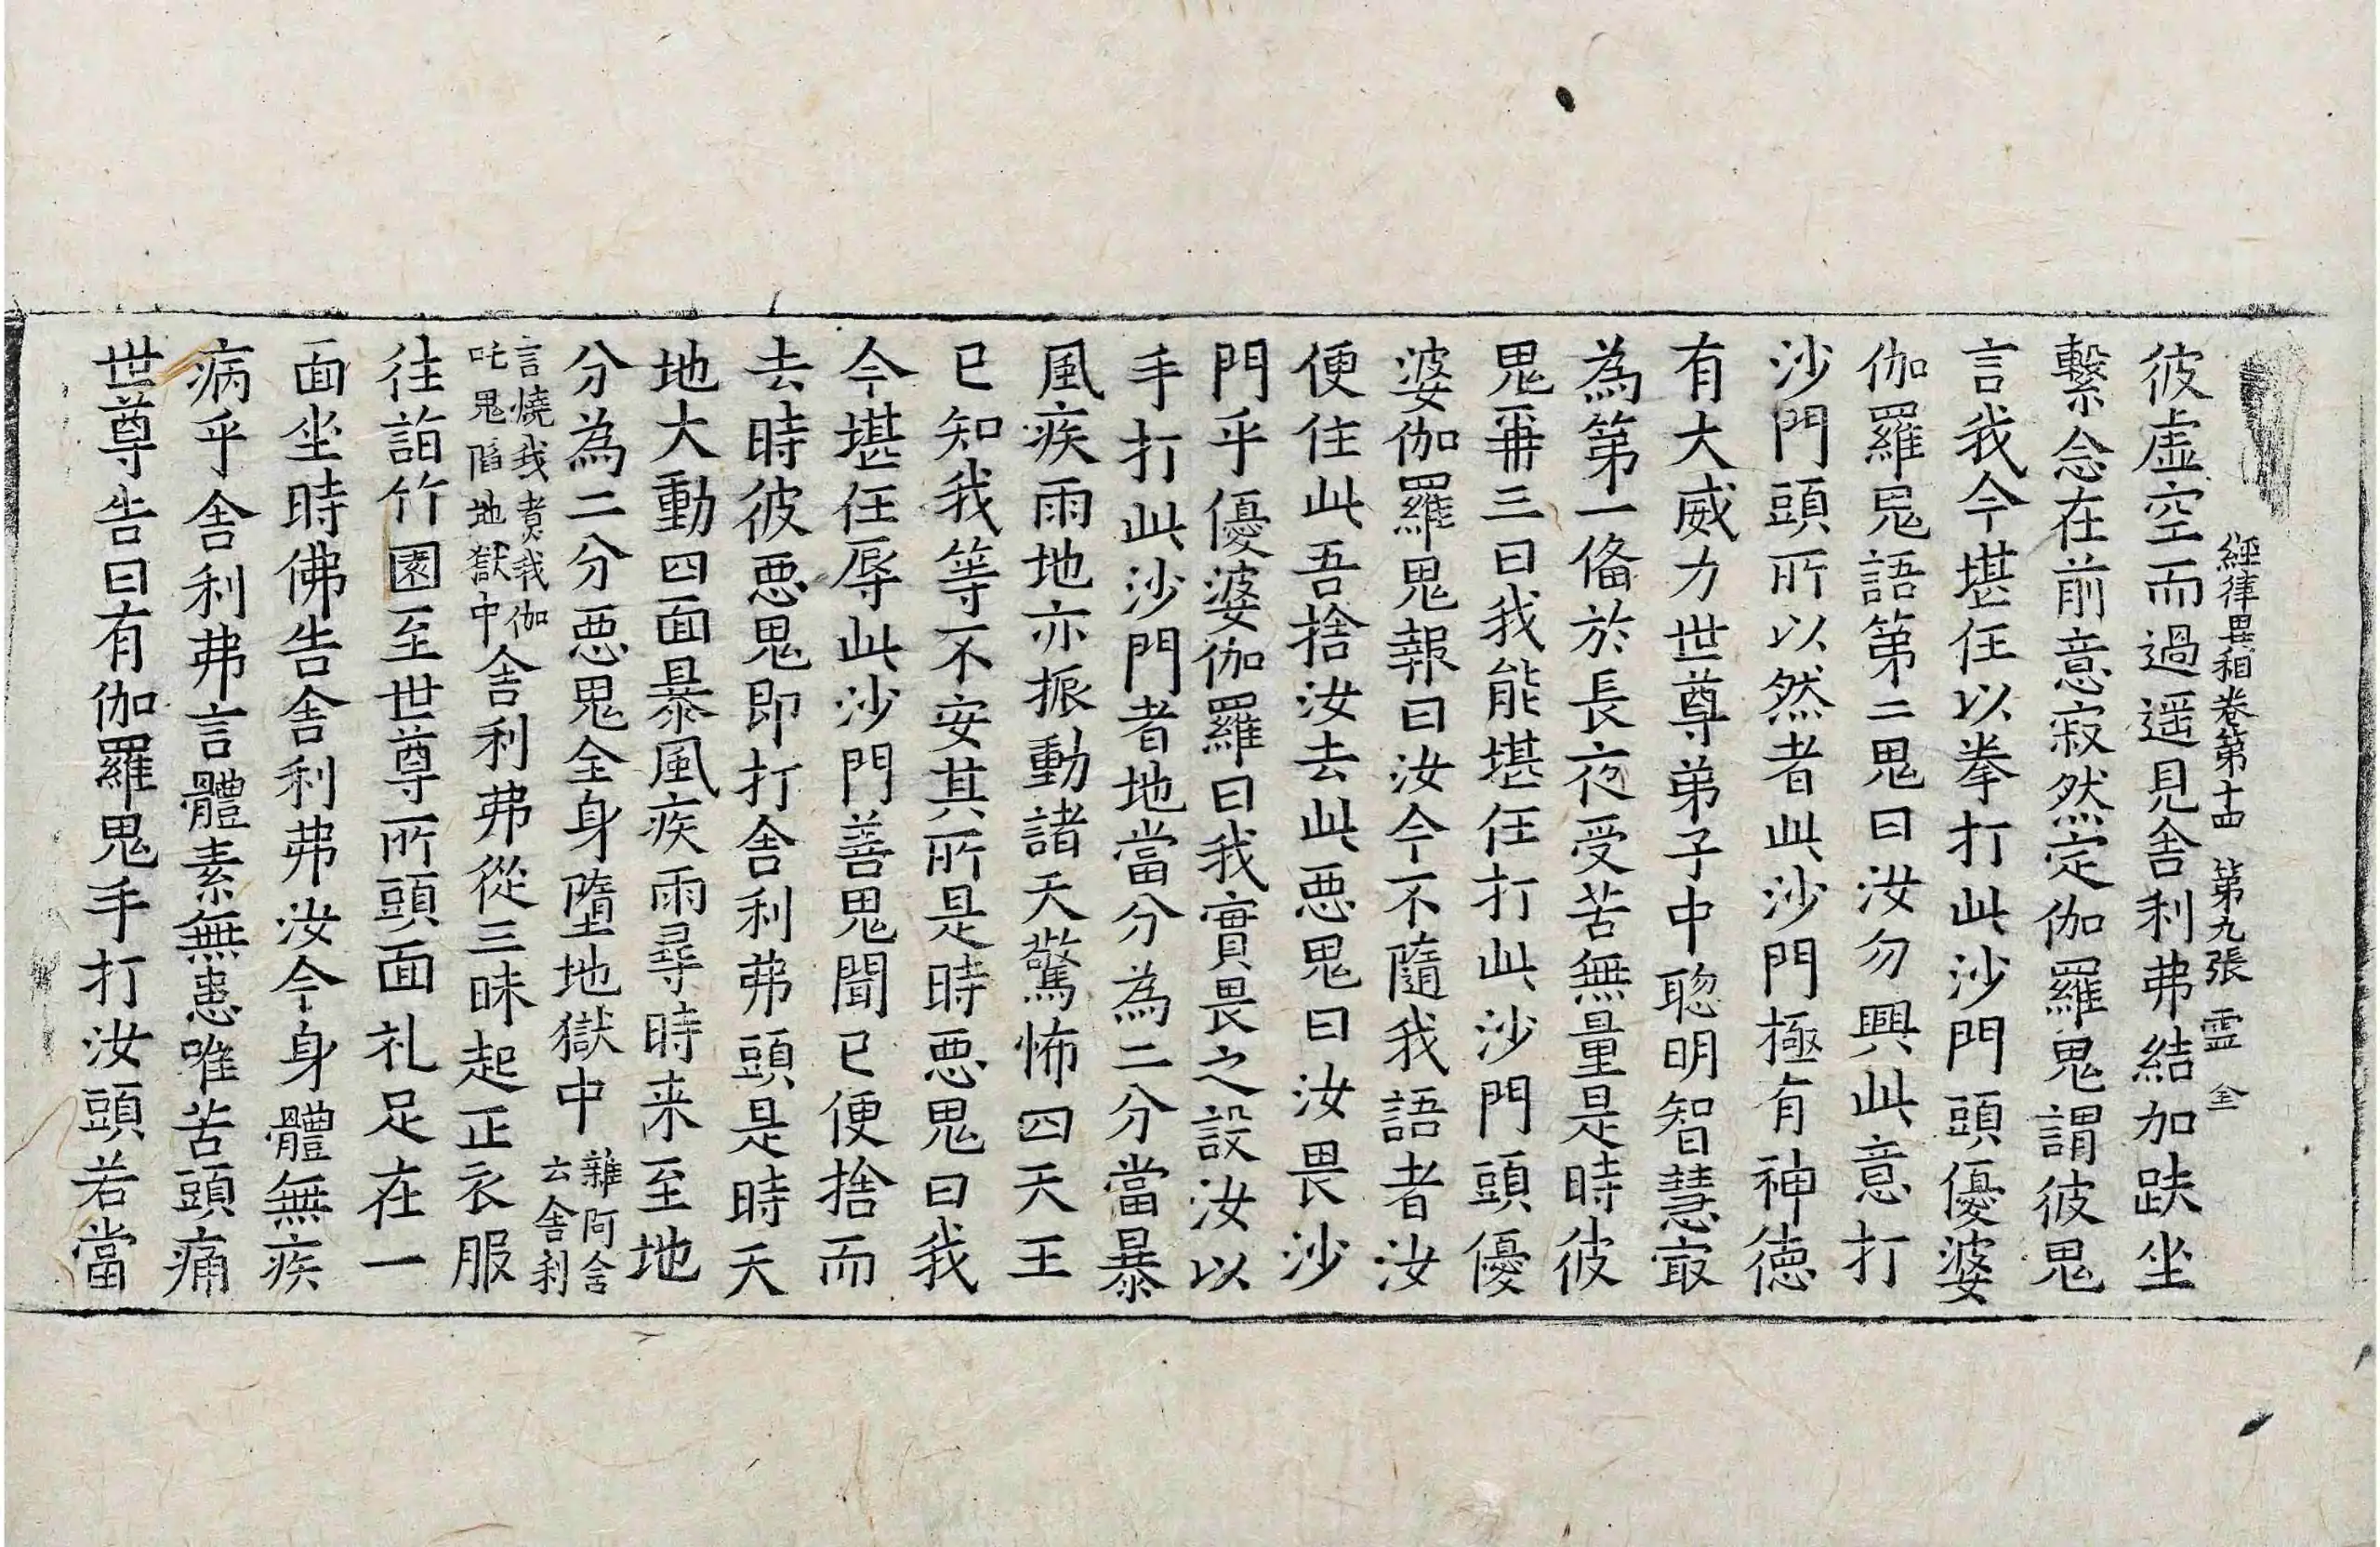 經律異相卷第十四 第九張 霊 全
彼虛空而過遥見舍利弗結加趺坐
繫念在前意寂然定伽羅鬼謂彼鬼
言我今堪任以拳打此沙門頭優婆
伽羅鬼語第二鬼曰汝勿興此意打
沙門頭所以然者此沙門極有神德
有大威力世尊弟子中聦明智慧㝡
為第一俻於長夜受苦無量是時彼
鬼再三曰我能堪任打此沙門頭優
婆伽羅鬼報曰汝今不隨我語者汝
便住此吾捨汝去此惡鬼曰汝畏沙
門乎優婆伽羅曰我實畏之設汝以
手打此沙門者地當分為二分當暴
風疾雨地亦振動諸天驚怖四天王
已知我等不安其所是時惡鬼曰我
今堪任辱此沙門善鬼聞已便捨而
去時彼惡鬼即打舍利弗頭是時天
地大動四面暴風疾雨尋時来至地
分為二分惡鬼全身墮地獄中雜阿含云舍利
言燒我煮我伽吒鬼陷地獄中舍利弗從三昧起正衣服
往詣竹園至世尊所頭面礼足在一
面坐時佛告舍利弗汝今身體無疾
病乎舍利弗言體素無患唯苦頭痛
世尊告曰有伽羅鬼手打汝頭若當